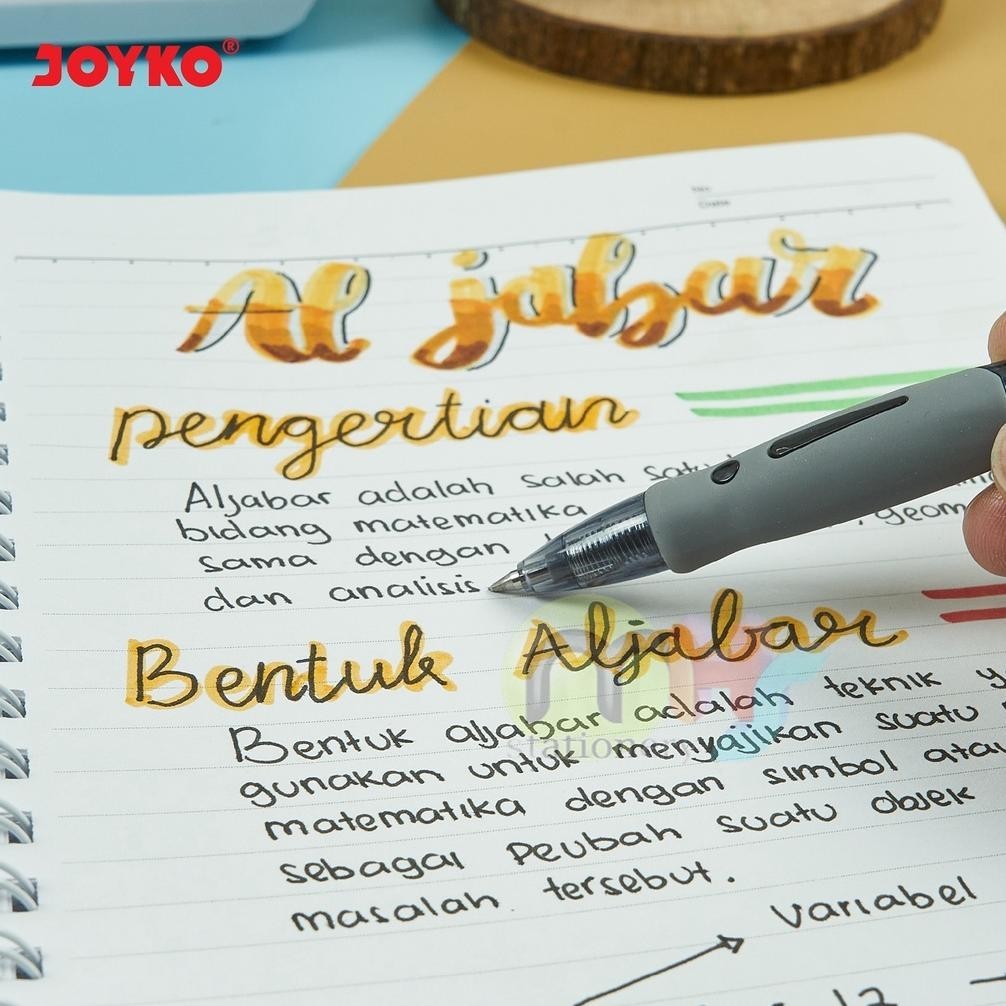 JOYKO®
No
Date
Al jabar
Pengertian
Aljabar adalah salah satu
bidang matematika
sama dengan
dan analisis
Bentuk Aljabar
Bentuk aljabar adalah teknik
gunakan untuk menyajikan suatu
matematika dengan simbol atau
sebagai Peubah suatu objek
masalah tersebut.
variabel